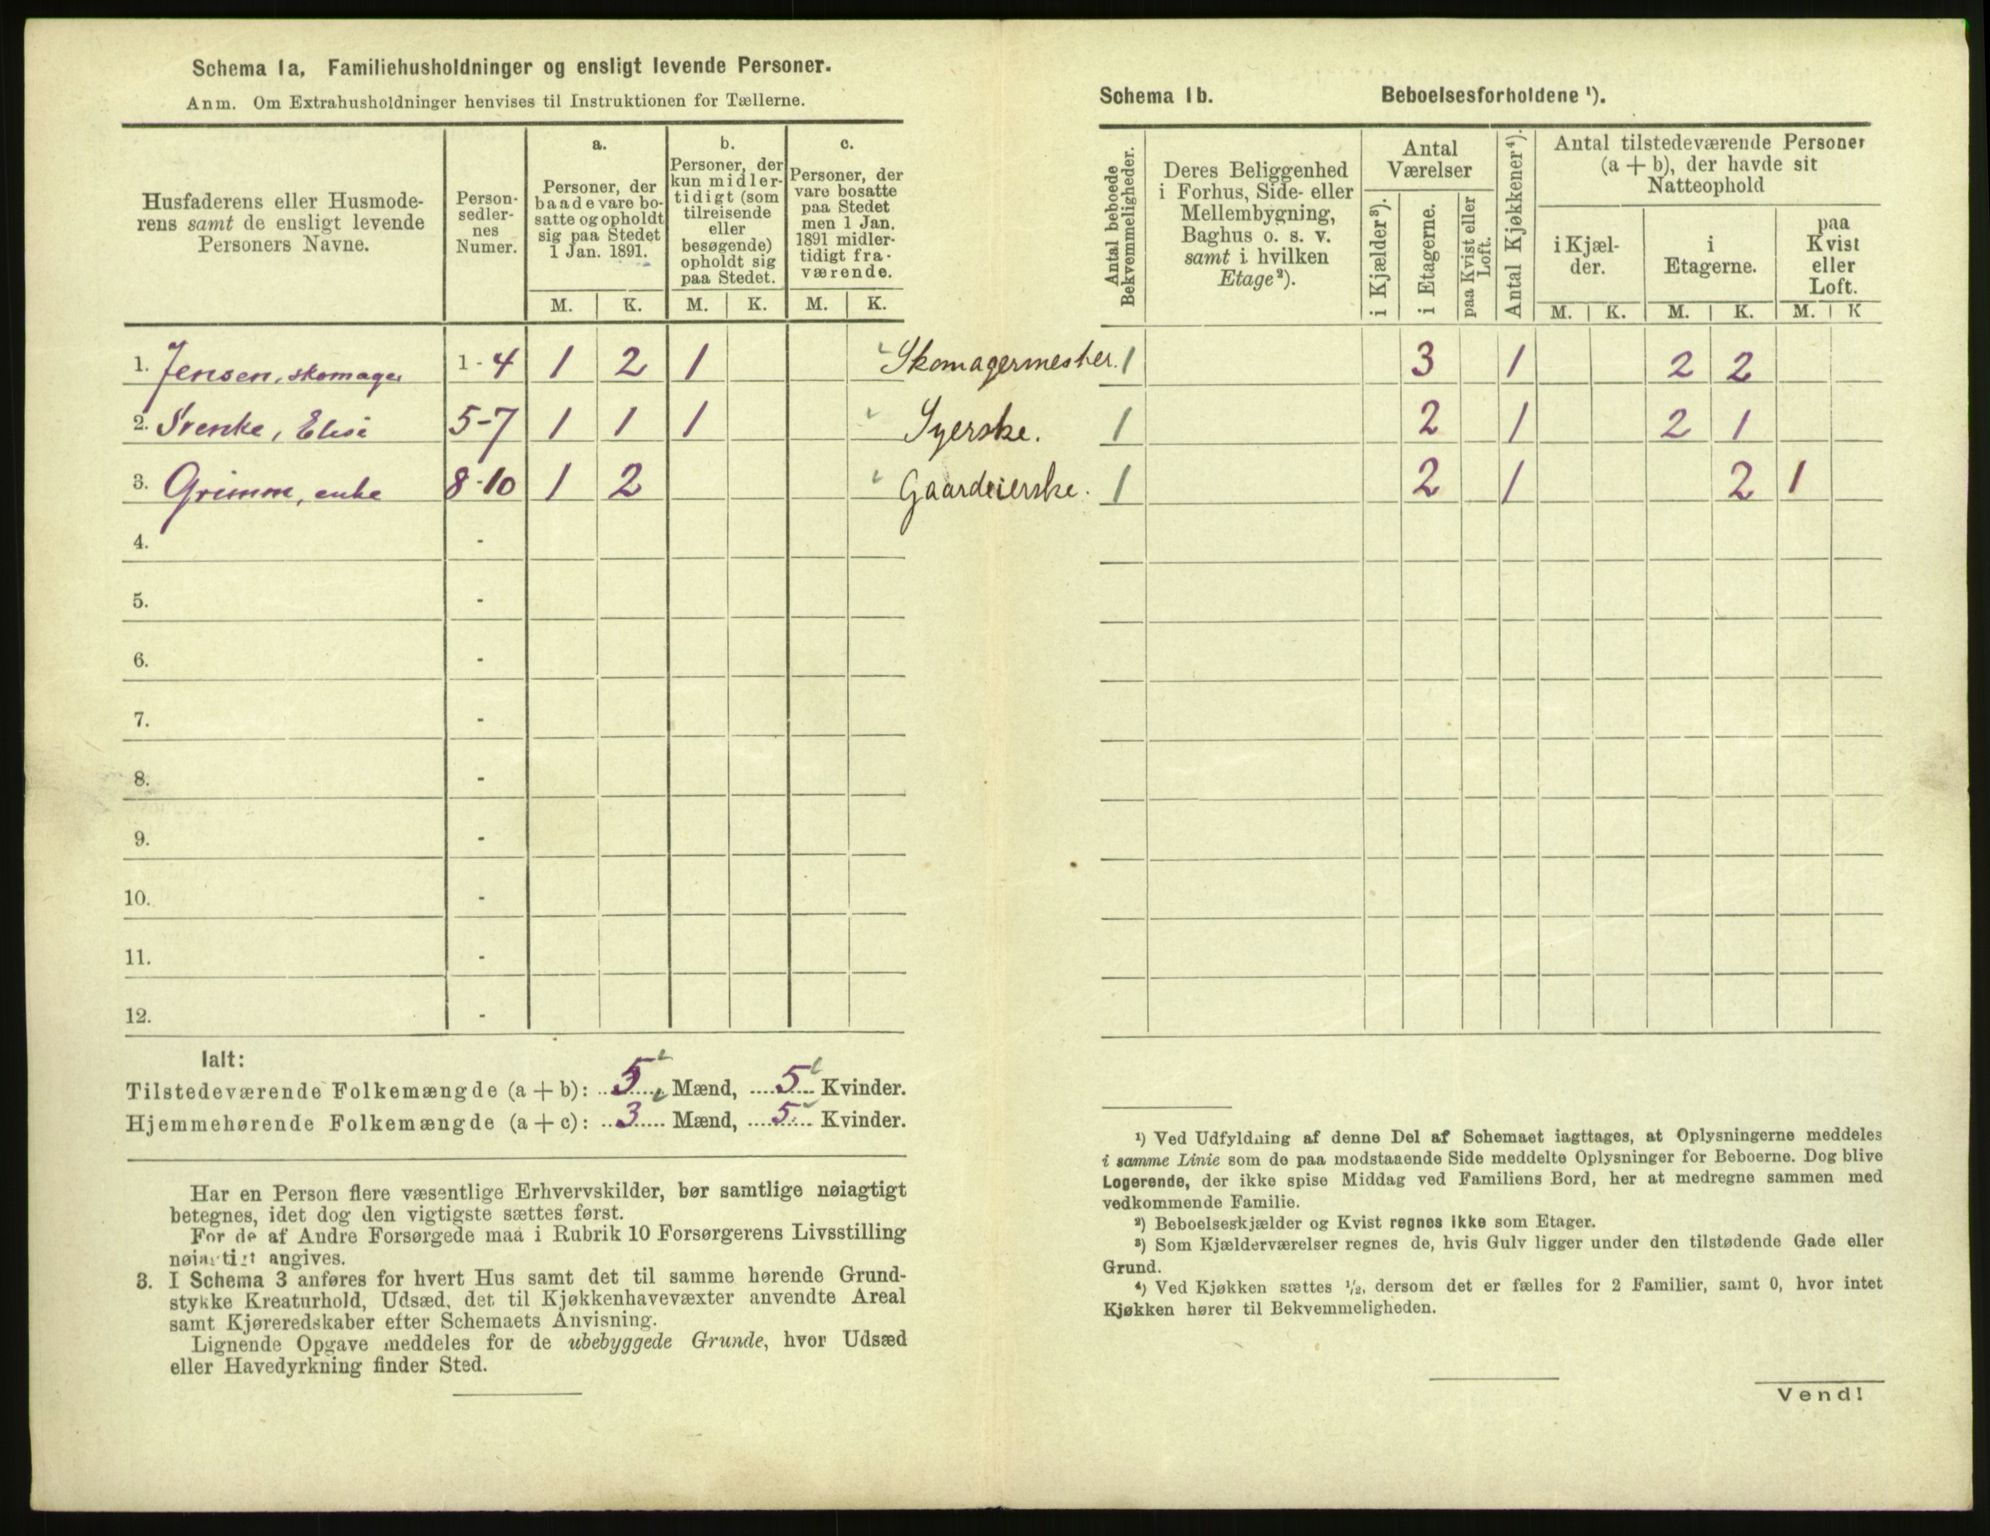 Schema 1a. Familiehusholdninger og ensligt levende Personer.
Anm. Om Extrahusholdninger henvises til Instruktionen for Tællerne.
Husfaderens eller Husmoderens samt de ensligt levende Personers Navne.
Personsedlernes Numer.
a.
Personer, der baade vare bosatte og opholdt sig paa Stedet 1 Jan. 1891.
b.
Personer, der kun midlertidigt (som tilreisende eller besøgende) opholdt sig paa Stedet.
c.
Personer, der vare bosatte paa Stedet men 1 Jan. 1891 midlertidigt fraværende.
M. K. M. K. M. K.
1. Jensen, skomager 1-4 1 2 1 Skomagermester.
2. Svenke, Elise 5-7 1 1 1 Syerske.
3. Grimm, enke 8-10 1 2 Gaardeierske.
4. -
5. -
6. -
7. -
8. -
9. -
10. -
11. -
12. -
Ialt:
Tilstedeværende Folkemængde (a + b): 5 Mænd, 5 Kvinder.
Hjemmehørende Folkemængde (a + c): 3 Mænd, 5 Kvinder.
Har en Person flere væsentlige Erhvervskilder, bør samtlige nøiagtigt
betegnes, idet dog den vigtigste sættes først.
For de af Andre Forsørgede maa i Rubrik 10 Forsørgerens Livsstilling
nøiagtigt angives.
3. I Schema 3 anføres for hvert Hus samt det til samme hørende Grund-
stykke Kreaturhold, Udsæd, det til Kjøkkenhavevæxter anvendte Areal
samt Kjøreredskaber efter Schemaets Anvisning.
Lignende Opgave meddeles for de ubebyggede Grunde, hvor Udsæd
eller Havedyrkning finder Sted.
Schema 1b. Beboelsesforholdene ¹).
Antal beboede Bekvemmeligheder.
Deres Beliggenhed i Forhus, Side- eller Mellembygning, Baghus o. s. v. samt i hvilken Etage²).
Antal Værelser
i Kjælder³).
i Etagerne.
paa Kvist eller Loft.
Antal Kjøkkener⁴).
Antal tilstedeværende Personer (a + b), der havde sit Natteophold
i Kjælder.
i Etagerne.
paa Kvist eller Loft.
M. K. M. K. M. K
1 3 1 2 2
1 2 1 2 1
1 2 1 2 1
¹) Ved Udfyldning af denne Del af Schemaet iagttages, at Oplysningerne meddeles
i samme Linie som de paa modstaaende Side meddelte Oplysninger for Beboerne. Dog blive
Logerende, der ikke spise Middag ved Familiens Bord, her at medregne sammen med
vedkommende Familie.
²) Beboelseskjælder og Kvist regnes ikke som Etager.
³) Som Kjælderværelser regnes de, hvis Gulv ligger under den tilstødende Gade eller
Grund.
⁴) Ved Kjøkken sættes ½, dersom det er fælles for 2 Familier, samt 0, hvor intet
Kjøkken hører til Bekvemmeligheden.
Vend!